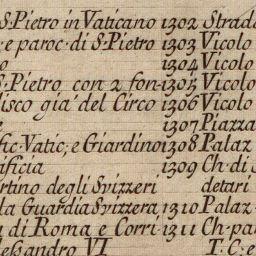 S. Pietro in Vaticano 1302 Strad
: e paroc. di S. Pietro 1303 Vicolo
o 1304 Vicolo
S. Pietro con 2 fon- 1305 Vicolo
lisco gia' del Circo 1306 Vicolo
e 1307 Piazza
fic. Vatic; e Giardino 1308 Palaz
ificia 1309 Ch. di S
rtino degli Svizzeri detari
la Guardia Svizzera 1310 Palaz
i di Roma e Corri- 1311 Ch. pa
lessandro VI T. C; e